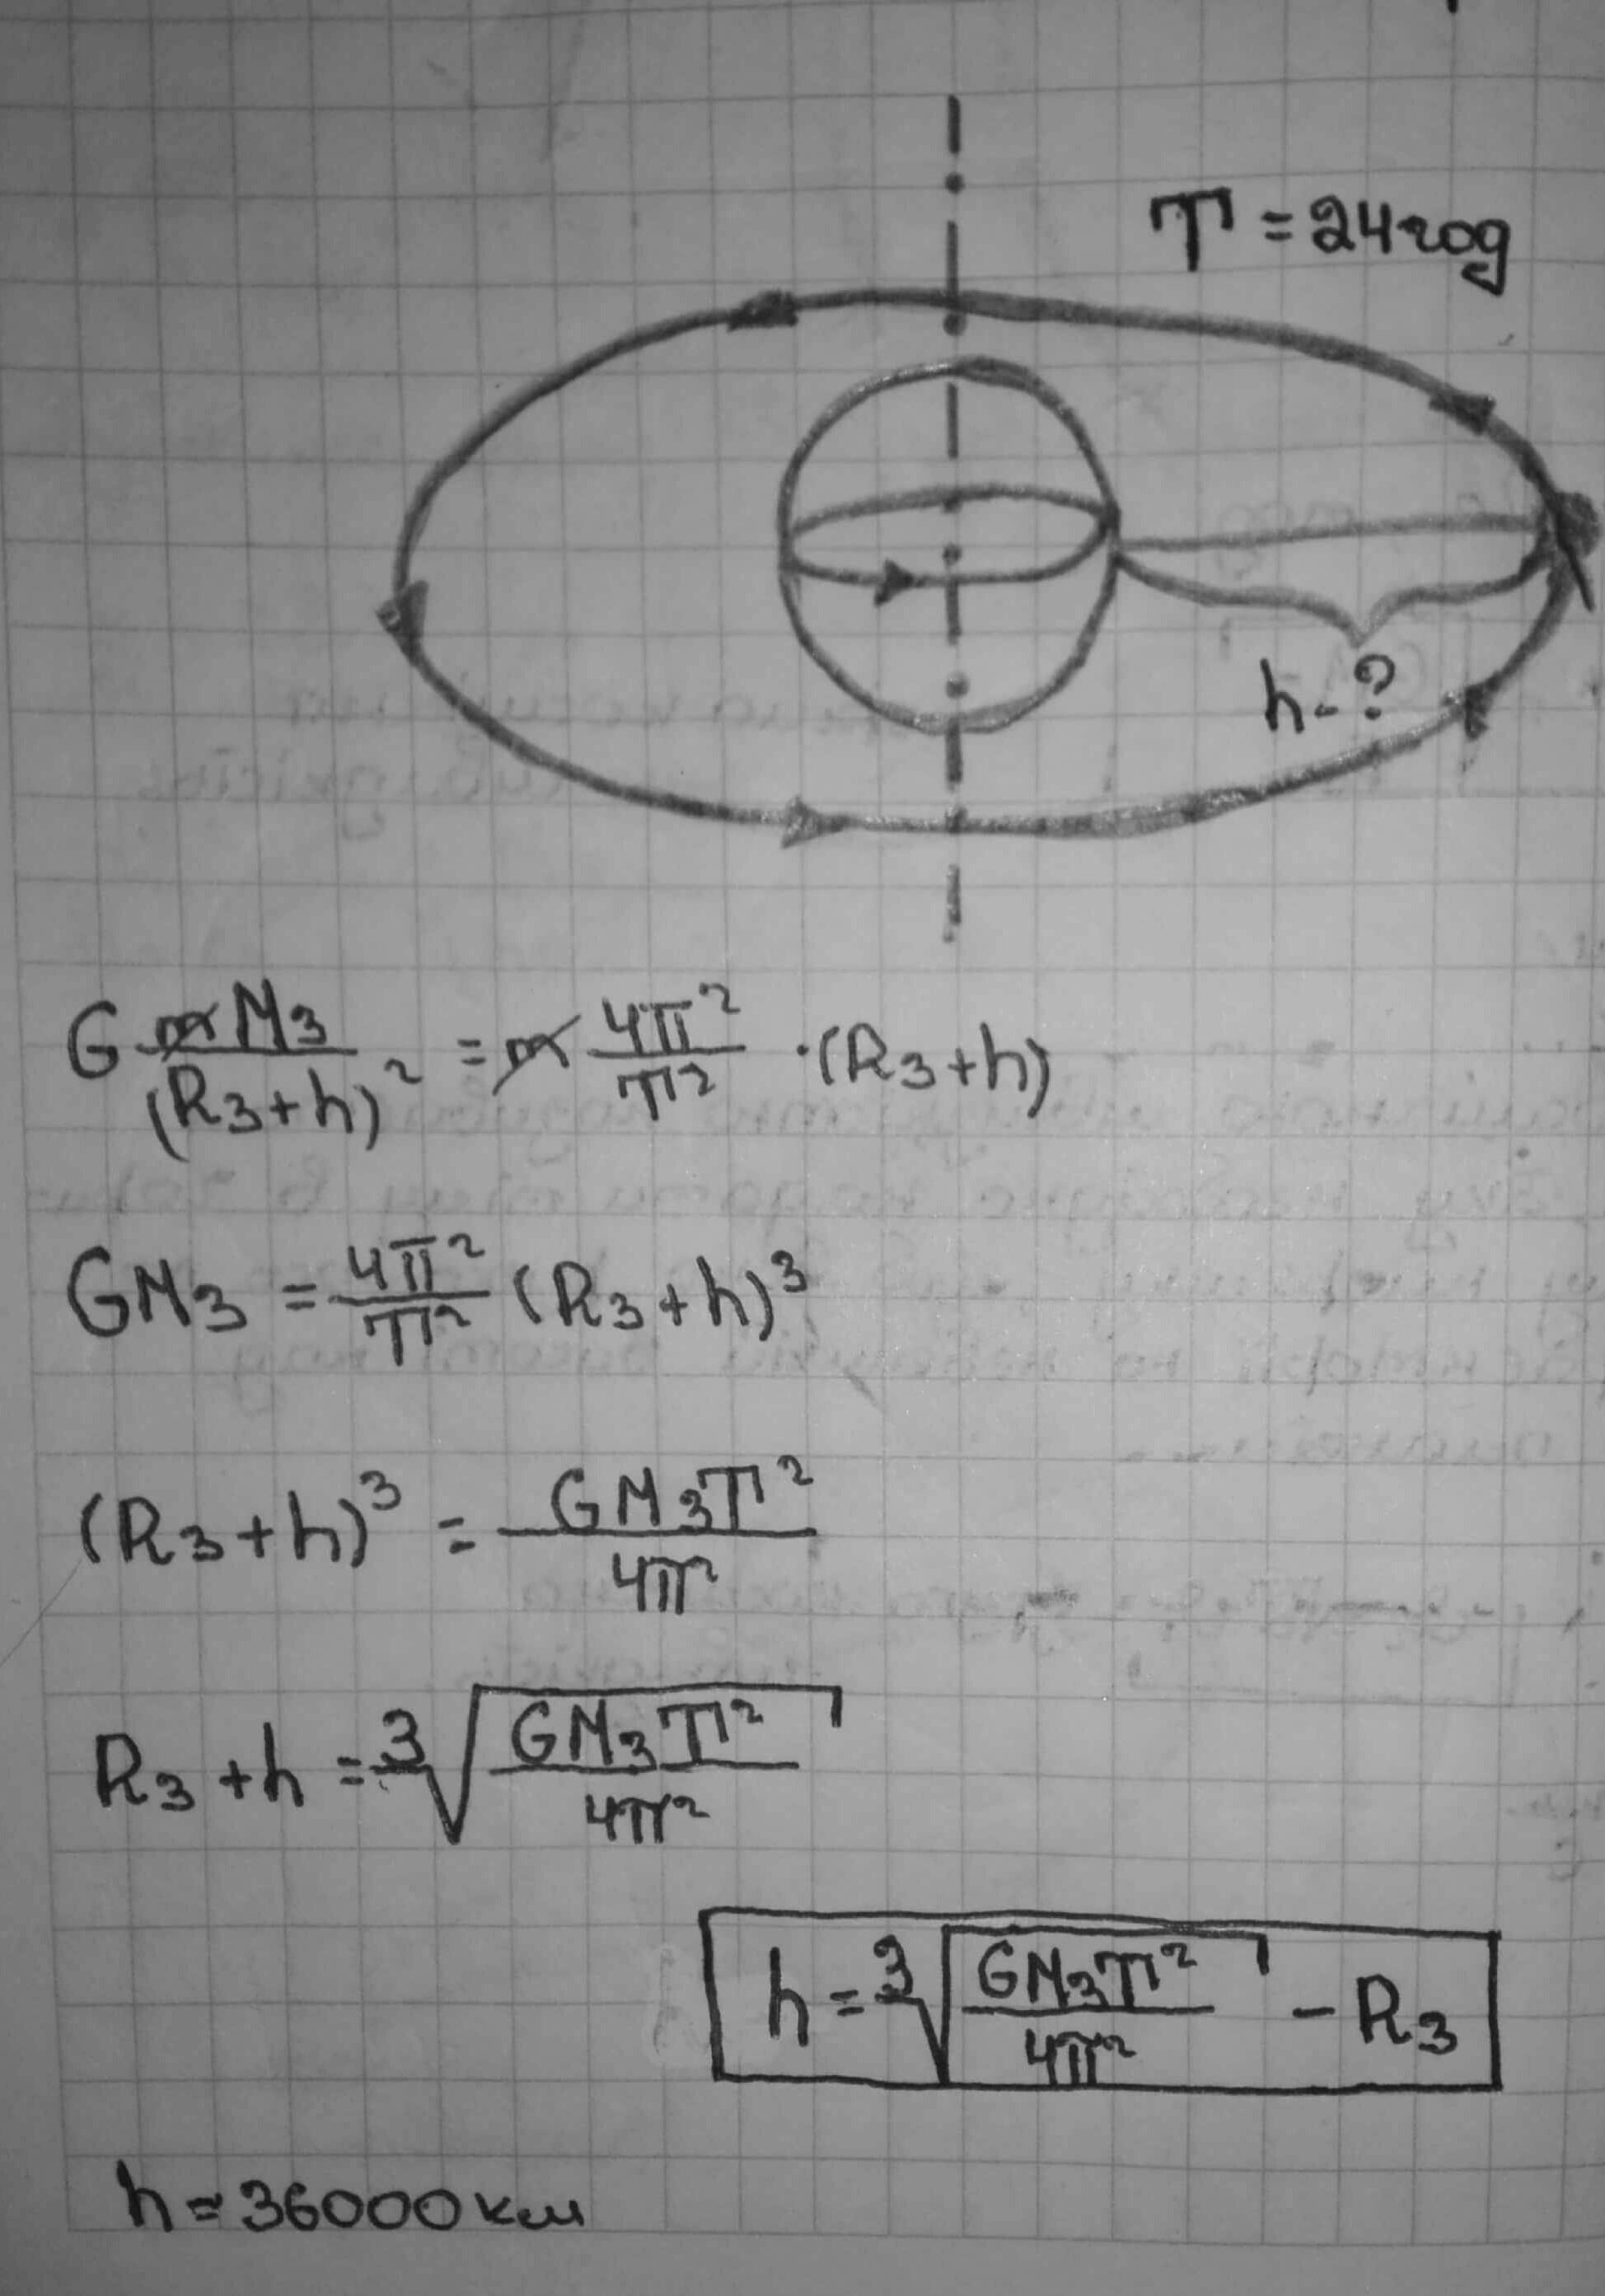 T = 24 год
h - ?
G mM₃/(R₃+h)² = m 4π²/T² · (R₃+h)
GM₃ = 4π²/T² (R₃+h)³
(R₃+h)³ = GM₃T²/4π²
R₃+h = ³√(GM₃T²/4π²)
h = ³√(GM₃T²/4π²) - R₃
h ≈ 36000 км